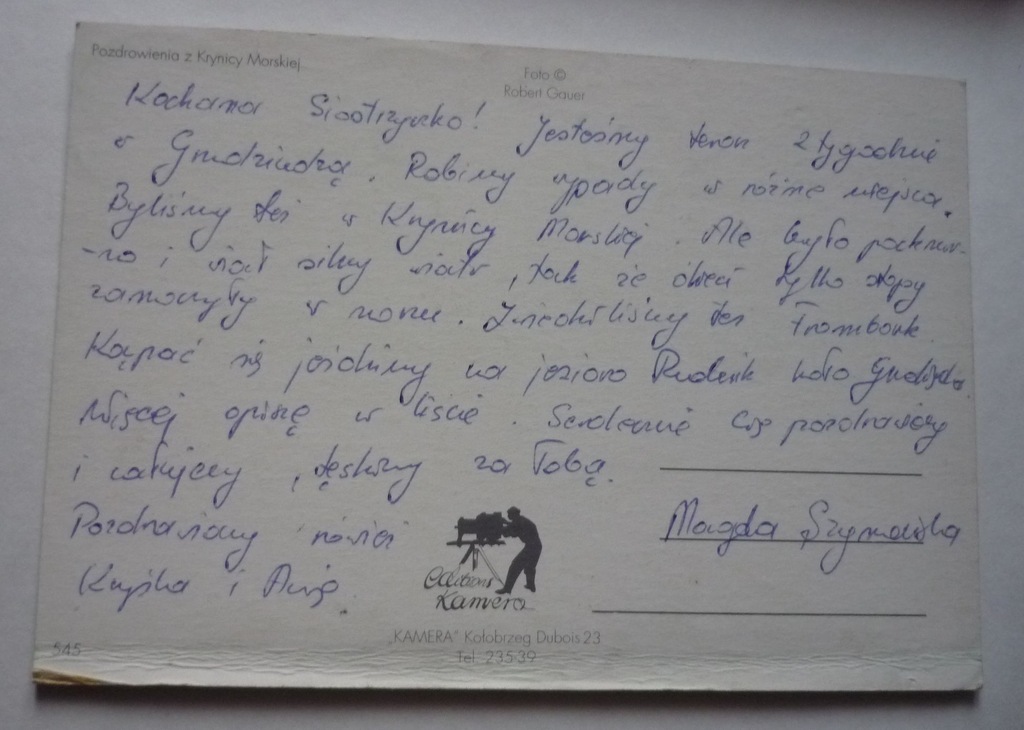 Pozdrowienia z Krynicy Morskiej
Foto ©
Robert Gauer
Kochana Siostrzyczko! Jesteśmy teraz 2 tygodnie
w Grudziądzu. Robimy wypady w różne miejsca.
Byliśmy też w Krynicy Morskiej. Ale było pochmur-
-no i wiał silny wiatr, tak że dzieci tylko stopy
zamoczyły w morzu. Zwiedziliśmy też Frombork.
Kąpać się jeździmy na jezioro Rudnik koło Grudziądza.
Więcej opiszę w liście. Serdecznie Cię pozdrawiamy
i całujemy, tęsknimy za Tobą.
Pozdrawiamy również
Krzyśka i Anię.
Magda Szymańska
Editions
Kamera
„KAMERA" Kołobrzeg Dubois 23
Tel. 235-39
545